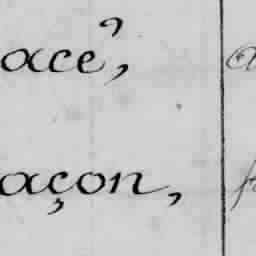 ace,
açon,